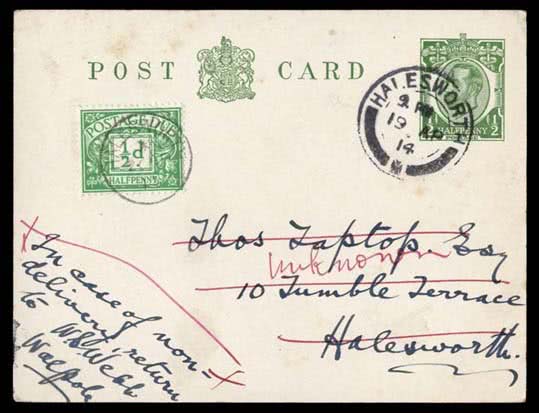 POST CARD
POSTAGE DUE
½d
HALFPENNY
HALFPENNY
HALESWORTH
9 PM
19 AP
14
Thos Taptop. Esq
unknown
10 Tumble Terrace
Halesworth.
In case of non-
delivery return
to W. Webb
Walpole